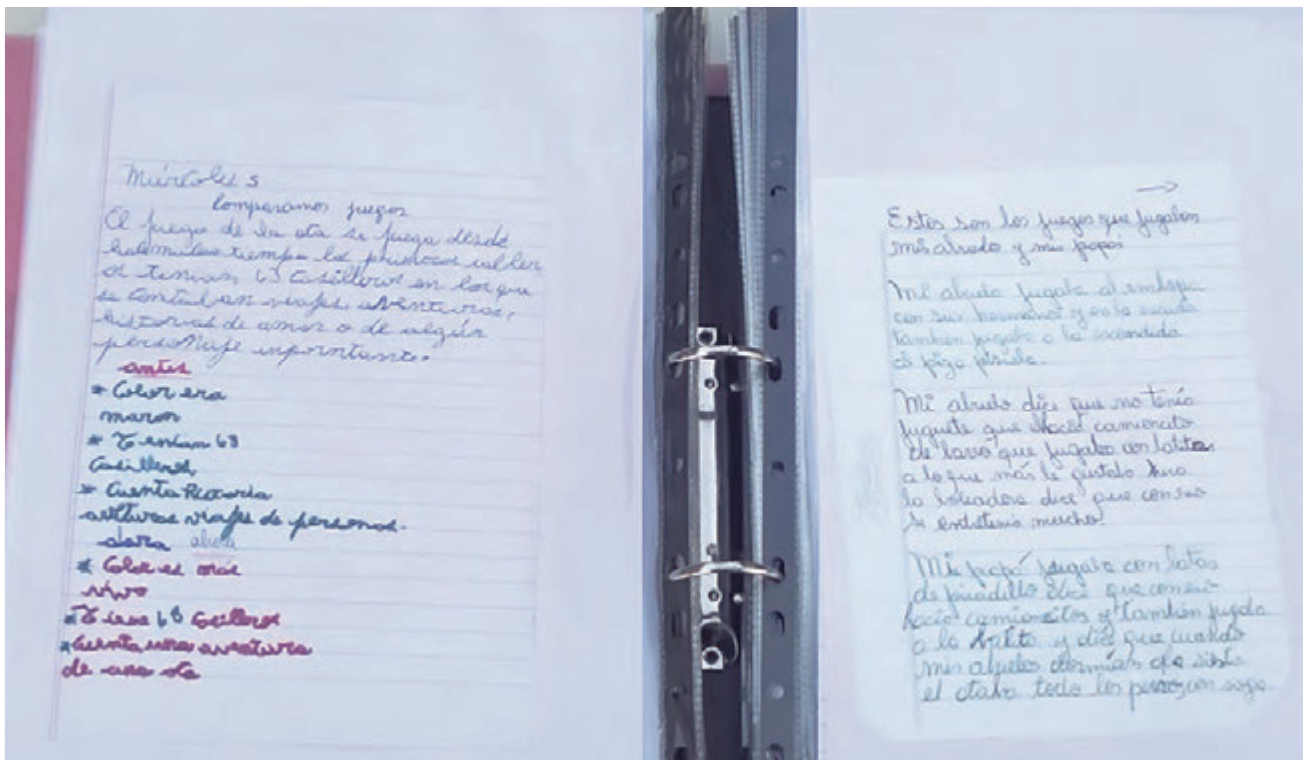 Miércoles 5
Comparamos juegos
El juego de la oca se juega desde
hace muchos tiempo los primeros tabler
os tenian 63 casilleros en los que
se contaban viajes aventuras,
historias de amor o de algún
personaje inporntante.
antes
* Color era
maron
* Tenian 63
Casilleros
*Cuenta
viaje de personas.
ahora
* Color es más
vivo
*Tiene 63 Casilleros
*Cuenta una aventura
de una oca
→
Estos son los juegos que jugaban
mi abuelo y mis papas
Mi abuelo jugaba al
con sus hermanos y en la escuela
tambien jugaba a la escondida
al
Mi abuelo dice que no tenia
juguete que hacia camioncito
de barro que jugaba con latitas
a lo que más le gustaba
la boleadora dice que con eso
se entretenia mucho.
Mi papá jugaba con latas
de picadillo dice que con eso
hacia camioncitos y también jugaba
a la bolita y dice que cuando
mis abuelos dormian la siesta
el ataba todo los perros con soga